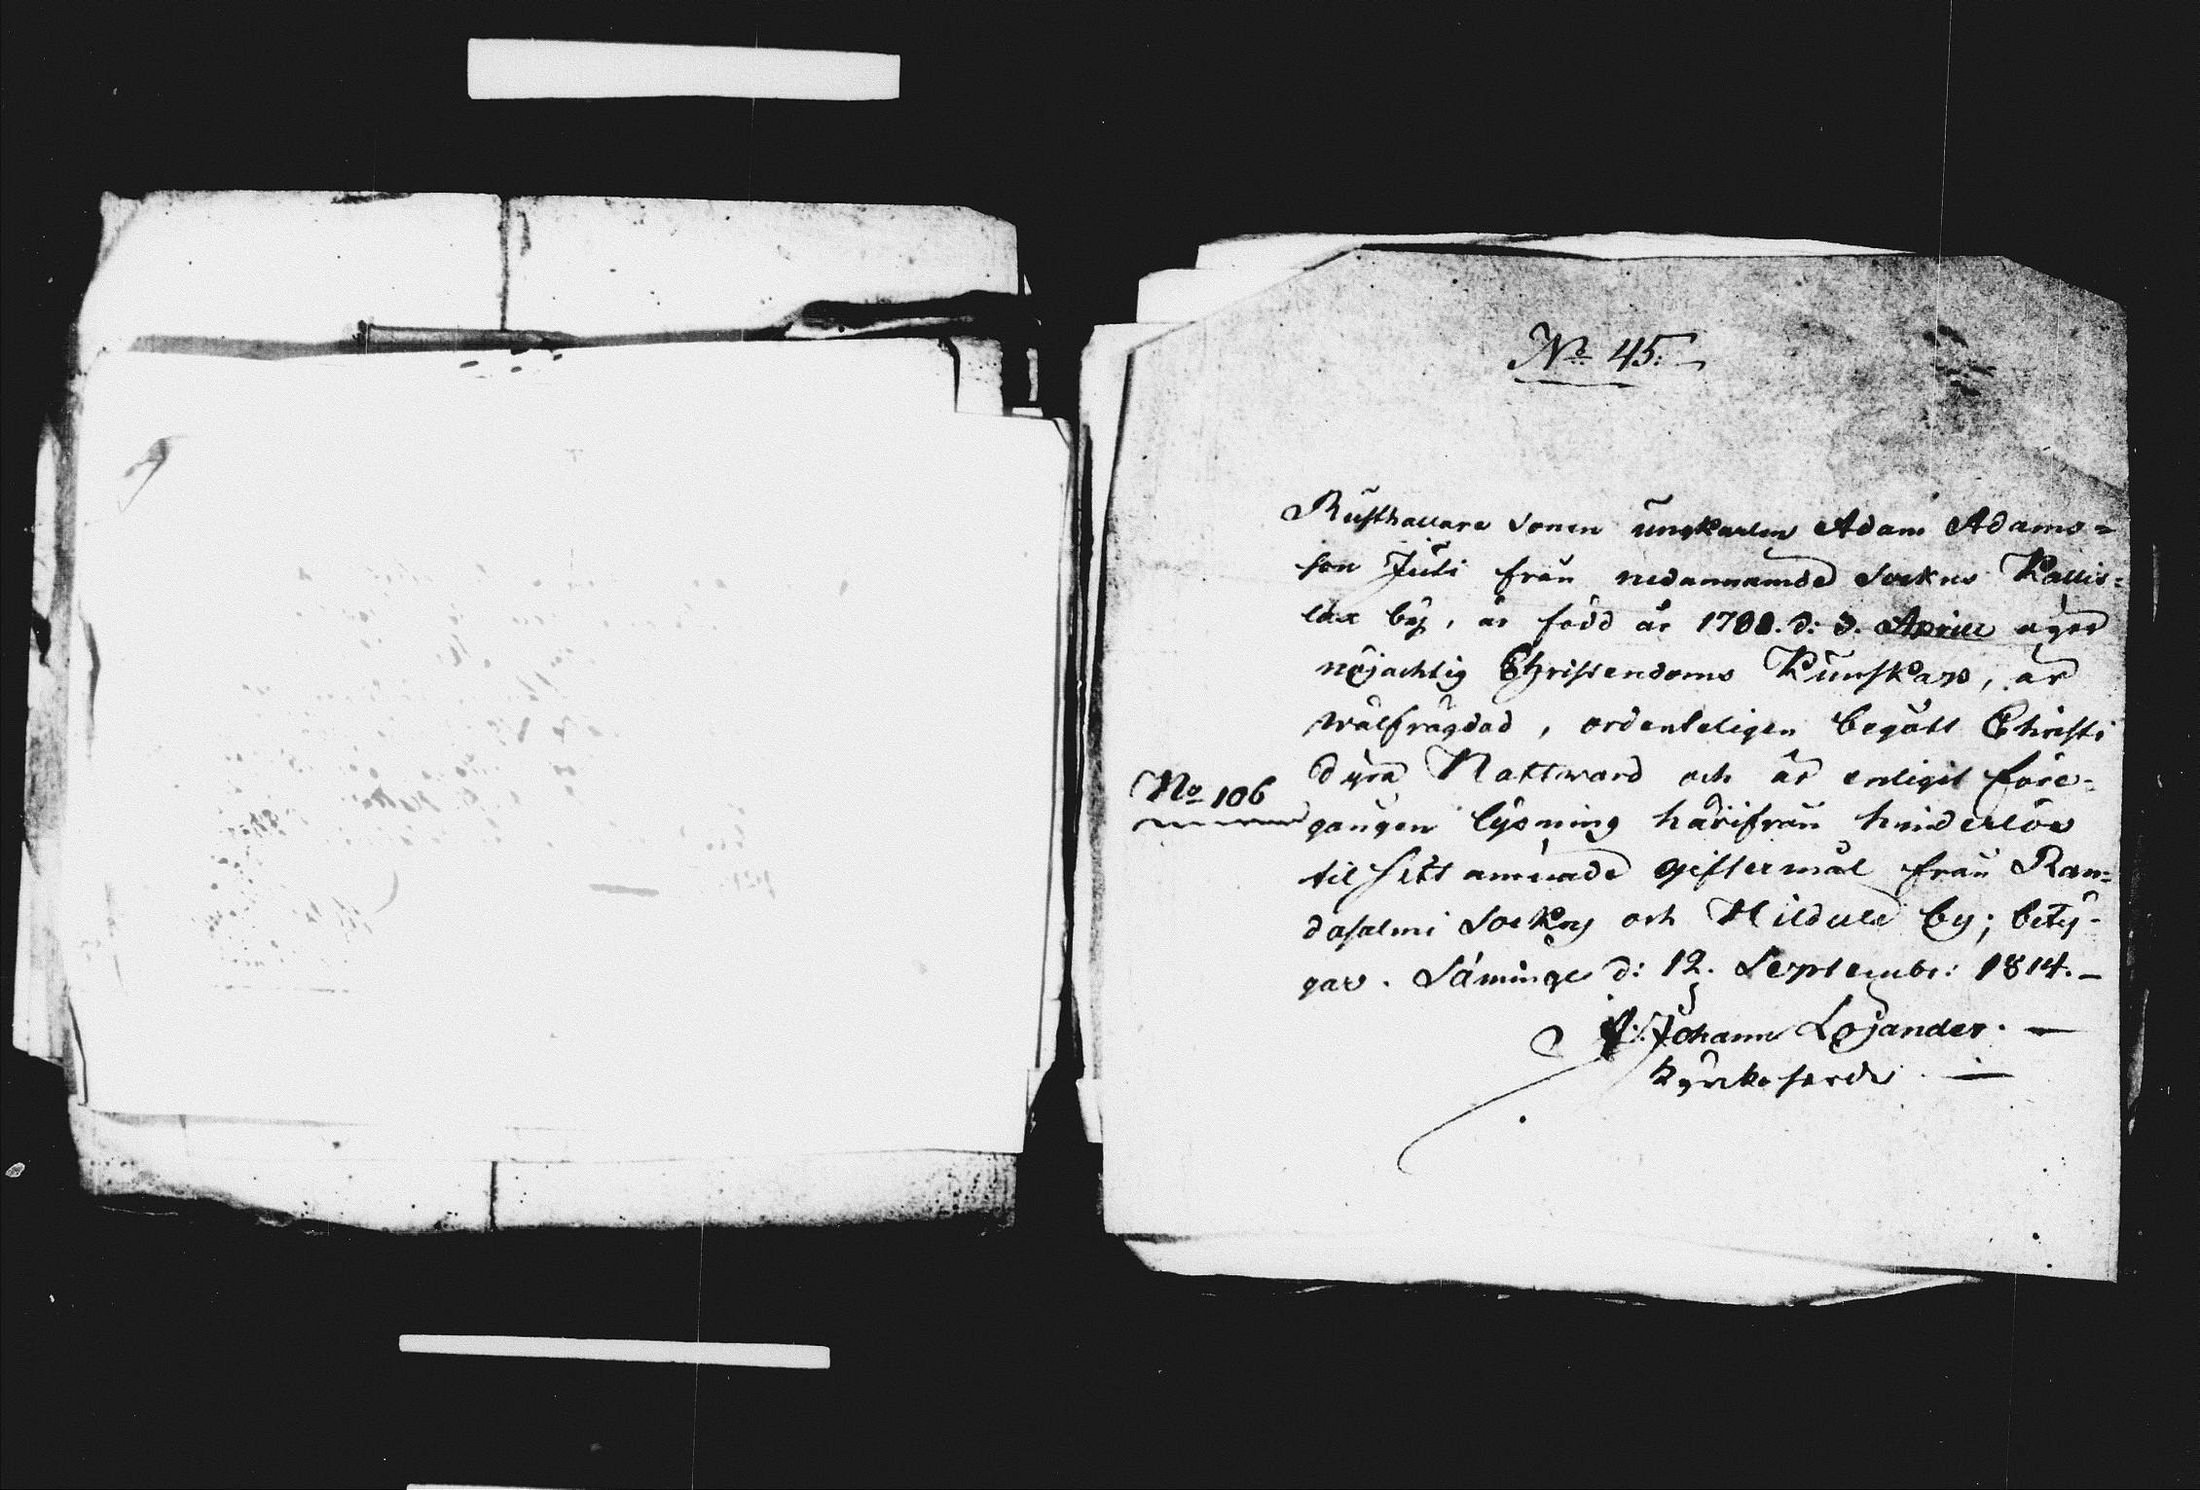 No 45.
Rusthållare Sonen ungkarlen Adam Adams=
son Juti från nedannamde Soekns Kallis=
lax by, är född år 1788. d: 3. Aprill äger
nöjachtig Christendoms Kunskap, är
wälfrägdad, ordenteligen begått Christi
dyra Nattward och är enligit före=
No 106
gången lysning härifrån hinderlös
til sitt ämnade giftermål från Ran=
dasalmi Sockn och Hildula by; bety=
gar. Säminge d: 12. September: 1814.
Johann Lojander.
Kyrkoherde